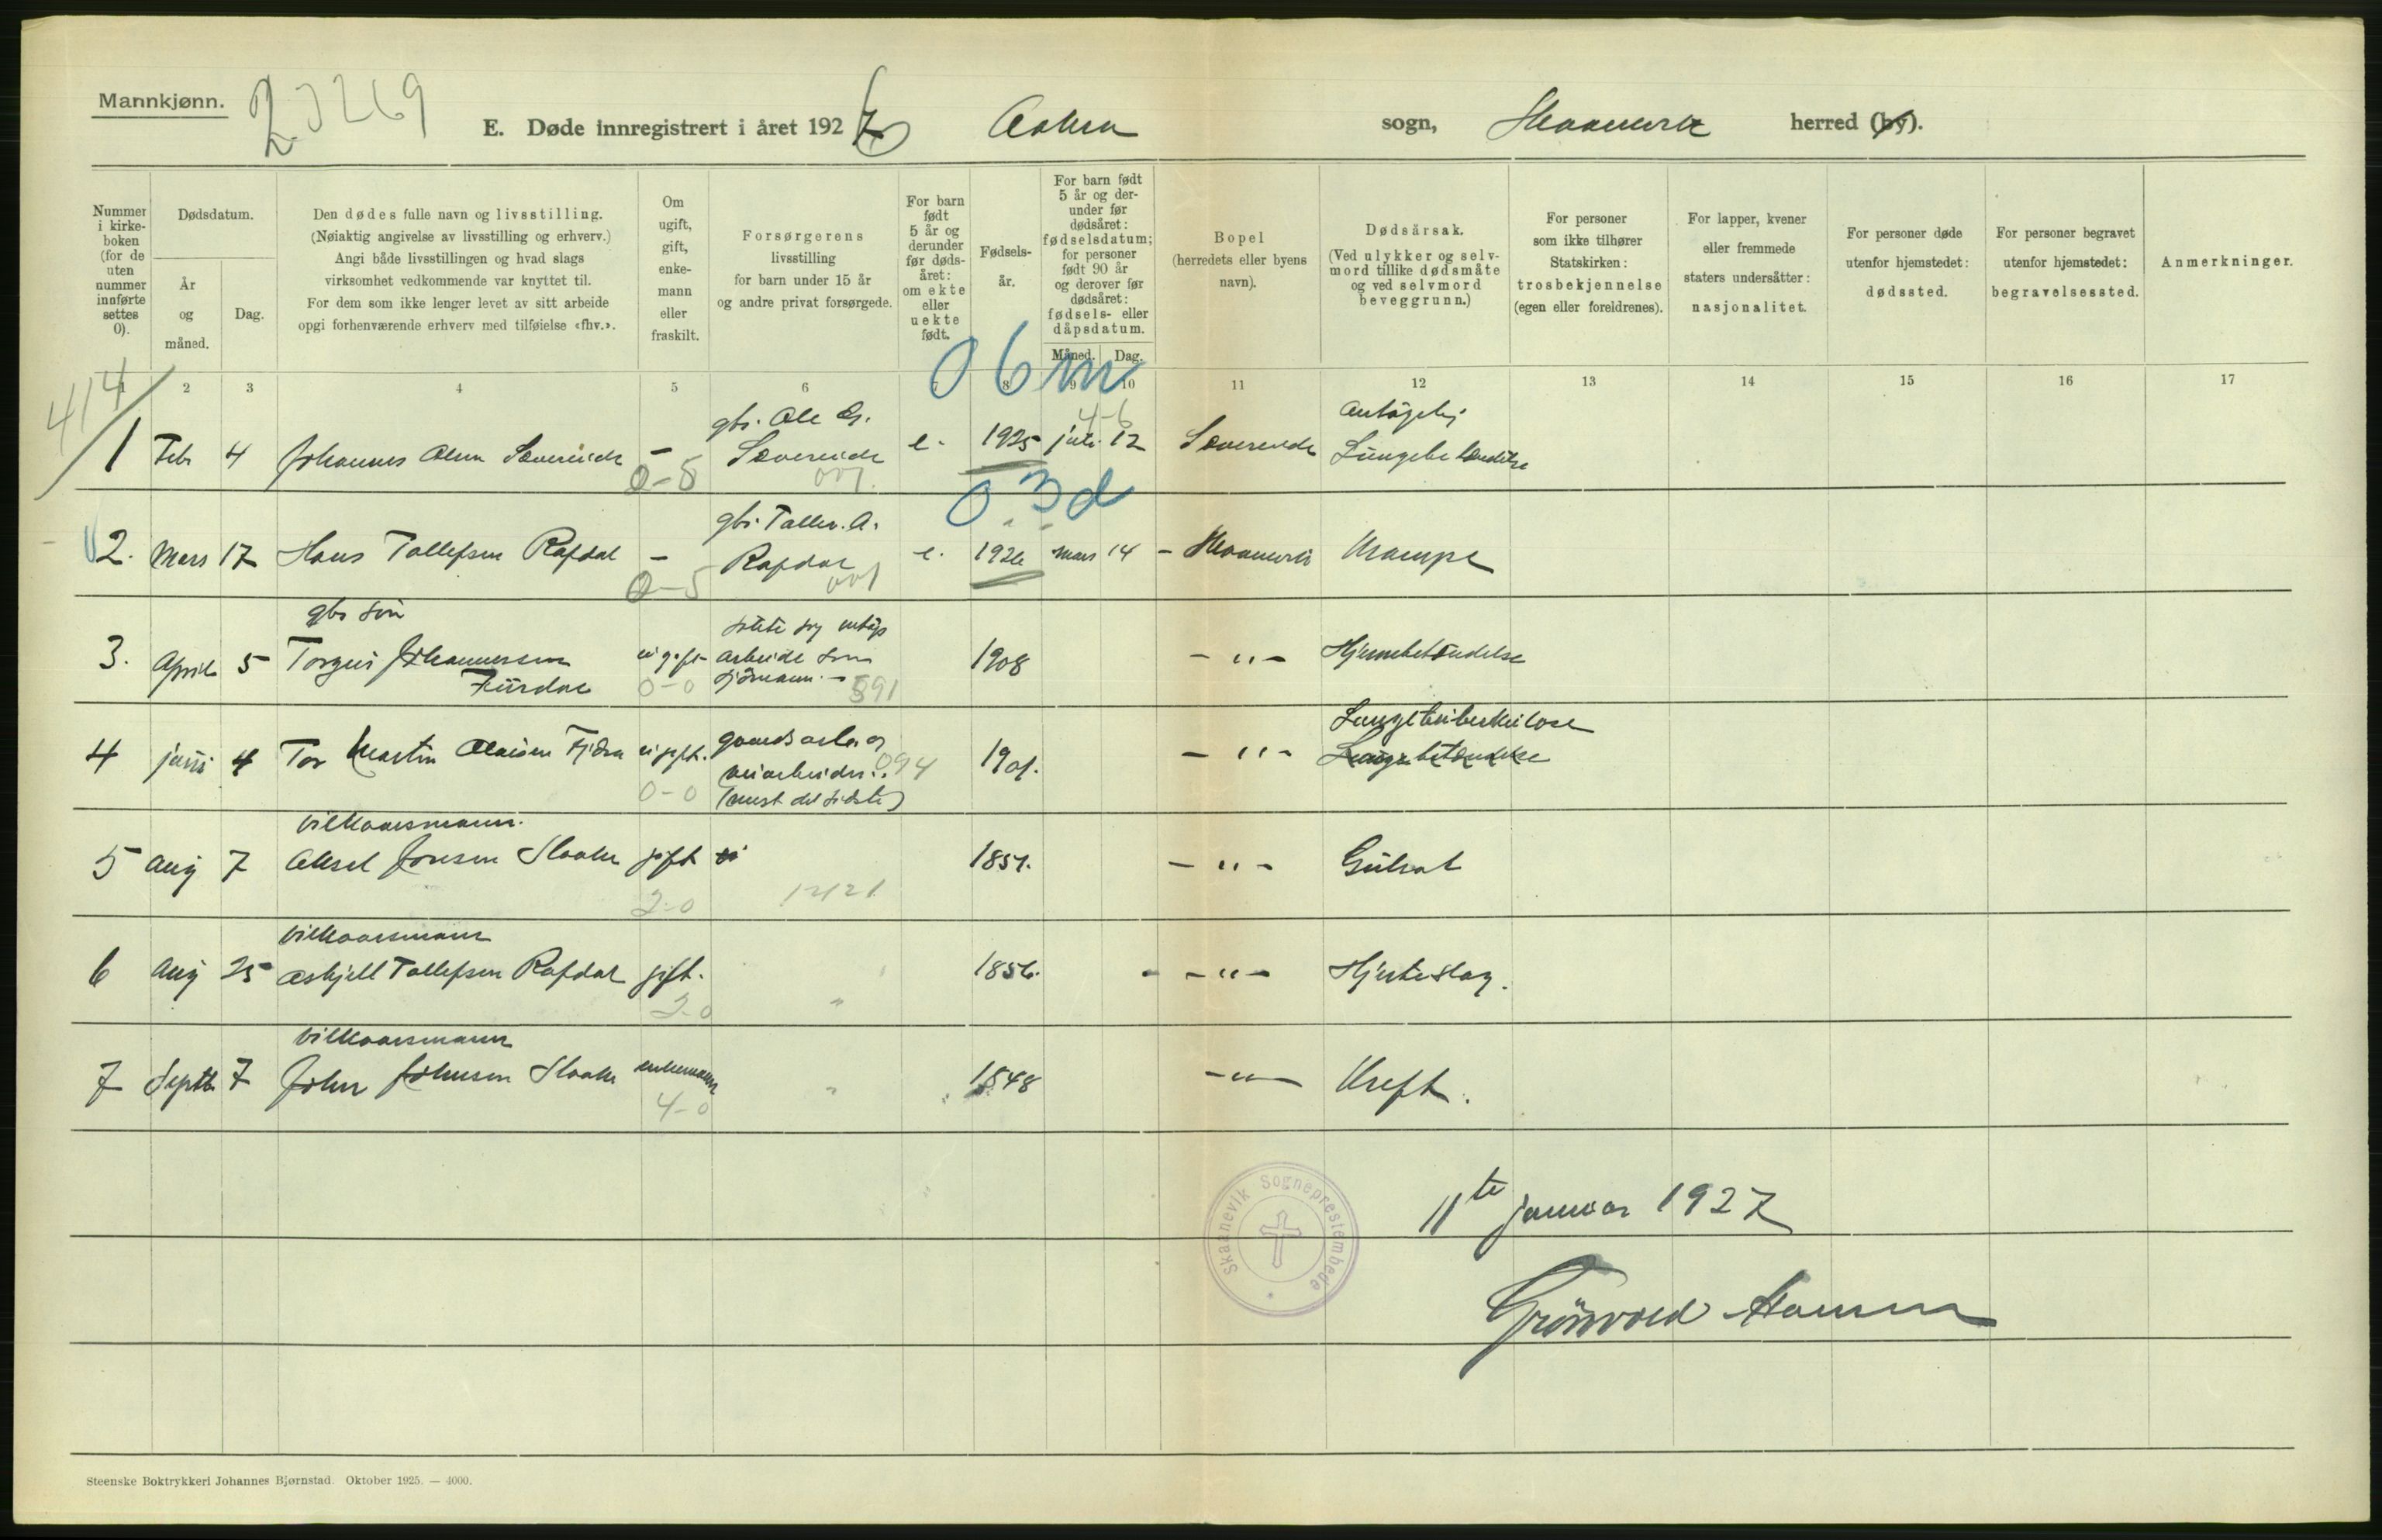 Mannkjønn.
23269
E. Døde innregistrert i året 1926 Aakra sogn, Skaanevik herred (by).
Nummer i kirke-boken (for de uten nummer innførte settes 0).
Dødsdatum.
År og måned.
Dag.
Den dødes fulle navn og livsstilling.
(Nøiaktig angivelse av livsstilling og erhverv.)
Angi både livsstillingen og hvad slags
virksomhet vedkommende var knyttet til.
For dem som ikke lenger levet av sitt arbeide
opgi forhenværende erhverv med tilføielse «fhv.».
Om ugift, gift, enke-mann eller fraskilt.
Forsørgerens
livsstilling
for barn under 15 år
og andre privat forsørgede.
For barn født 5 år og derunder før døds-året: om ekte eller uekte født.
Fødsels-år.
For barn født 5 år og der-under før dødsåret: fødselsdatum; for personer født 90 år og derover før dødsåret: fødsels- eller dåpsdatum.
Måned. Dag.
Bopel
(herredets eller byens
navn).
Dødsårsak.
(Ved ulykker og selv-
mord tillike dødsmåte
og ved selvmord
beveggrunn.)
For personer
som ikke tilhører
Statskirken:
trosbekjennelse
(egen eller foreldrenes).
For lapper, kvener
eller fremmede
staters undersåtter:
nasjonalitet.
For personer døde
utenfor hjemstedet:
dødssted.
For personer begravet
utenfor hjemstedet:
begravelsessted.
Anmerkninger.
1 2 3 4 5 6 7 8 9 10 11 12 13 14 15 16 17
414
06m
4-6
gbr. Ole
1 Febr 4 Johannes Olsen Sævereide - Sævereide e. 1925 juli 12 Sævereide Lungebetændelse
0-5 001
03d
gbr. Tallev. A.
2. Mars 17 Hans Tollefsen Rafdal - Rafdal e. 1926 mars 14 - Skaanevik Krampe
0-5 001
gbr søn
3. April 5 Torgeir Johannessen Fürdal ugift arbeide som sjömann. - 1908 - " - Hjernebetændelse
0-0 591
Lungetuberkulose
4 juni 4 Tor Martin Olaisen Fjæra ugift. gaardsarb. og veiarbeider. 1901. - " - Lungebetændelse
0-0 094
vilkaarsmann.
5 Aug 7 Aksel Jonsen Slaake gift 1851. - " - Gulsot
2-0 12121
vilkaarsmann
6 Aug 25 Askjell Tollefsen Rafdal gift. 1856. - " - Hjerteslag.
2-0 "
vilkaarsmann
7 Septb 7 John Johnsen Slaake enkemann 1848 - " - Kreft.
4-0 "
Skaanevik Sogneprestembede
11te januar 1927
Grönvold Hansen
Steenske Boktrykkeri Johannes Bjørnstad. Oktober 1925. — 4000.